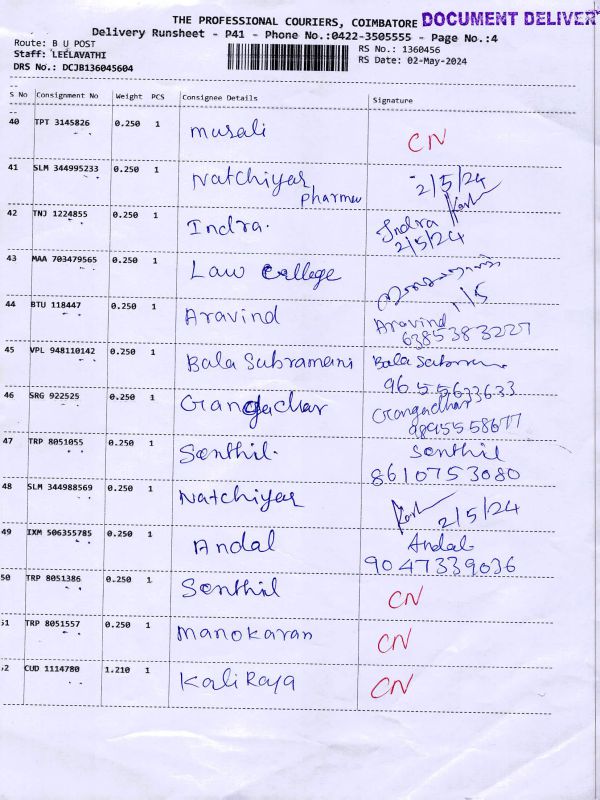 THE PROFESSIONAL COURIERS, COIMBATORE DOCUMENT DELIVER
Delivery Runsheet - P41 - Phone No.:0422-3505555 - Page No.:4
Route: B U POST
Staff: LEELAVATHI
DRS No.: DCJB136045604
RS No.: 1360456
RS Date: 02-May-2024
S No Consignment No Weight PCS Consignee Details Signature
40 TPT 3145826 0.250 1 Murali CN
41 SLM 344995233 0.250 1 Natchiyar 2/5/24
Pharma
42 TNJ 1224855 0.250 1 Indra. Indra
2/5/24
43 MAA 703479565 0.250 1 Law College
44 BTU 118447 0.250 1 Aravind Aravind
6385383227
45 VPL 948110142 0.250 1 Bala Subramani Bala
9655633633
46 SRG 922525 0.250 1 Gangadhar Gangadhar
9895558677
47 TRP 8051055 0.250 1 Senthil. Senthil
8610753080
48 SLM 344988569 0.250 1 Natchiyar 2/5/24
49 IXM 506355785 0.250 1 Andal Andal
9047339036
50 TRP 8051386 0.250 1 Senthil CN
51 TRP 8051557 0.250 1 Manokaran CN
52 CUD 1114780 1.210 1 Kali Raja CN